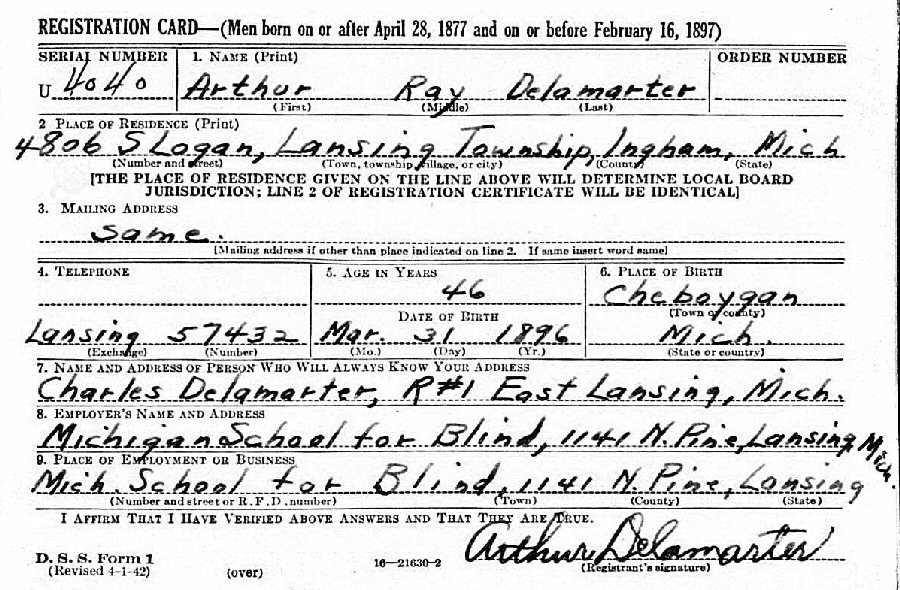 REGISTRATION CARD—(Men born on or after April 28, 1877 and on or before February 16, 1897)
SERIAL NUMBER 1. NAME (Print) ORDER NUMBER
U 4040 Arthur Ray Delamarter
(First) (Middle) (Last)
2 PLACE OF RESIDENCE (Print)
4806 S Logan, Lansing Township, Ingham, Mich
(Number and street) (Town, township, village, or city) (County) (State)
[THE PLACE OF RESIDENCE GIVEN ON THE LINE ABOVE WILL DETERMINE LOCAL BOARD
JURISDICTION; LINE 2 OF REGISTRATION CERTIFICATE WILL BE IDENTICAL]
3. MAILING ADDRESS
same.
[Mailing address if other than place indicated on line 2. If same insert word same]
4. TELEPHONE 5. AGE IN YEARS 6. PLACE OF BIRTH
46 Cheboygan
DATE OF BIRTH (Town or county)
Lansing 57432 Mar. 31 1896 Mich.
(Exchange) (Number) (Mo.) (Day) (Yr.) (State or country)
7. NAME AND ADDRESS OF PERSON WHO WILL ALWAYS KNOW YOUR ADDRESS
Charles Delamarter, R#1 East Lansing, Mich.
8. EMPLOYER'S NAME AND ADDRESS
Michigan School for Blind, 1141 N. Pine, Lansing, Mich.
9. PLACE OF EMPLOYMENT OR BUSINESS
Mich. School for Blind, 1141 N. Pine, Lansing
(Number and street or R.F.D. number) (Town) (County) (State)
I AFFIRM THAT I HAVE VERIFIED ABOVE ANSWERS AND THAT THEY ARE TRUE.
Arthur Delamarter
D. S. S. Form 1
(Revised 4-1-42) (over) 16—21630-2 (Registrant's signature)